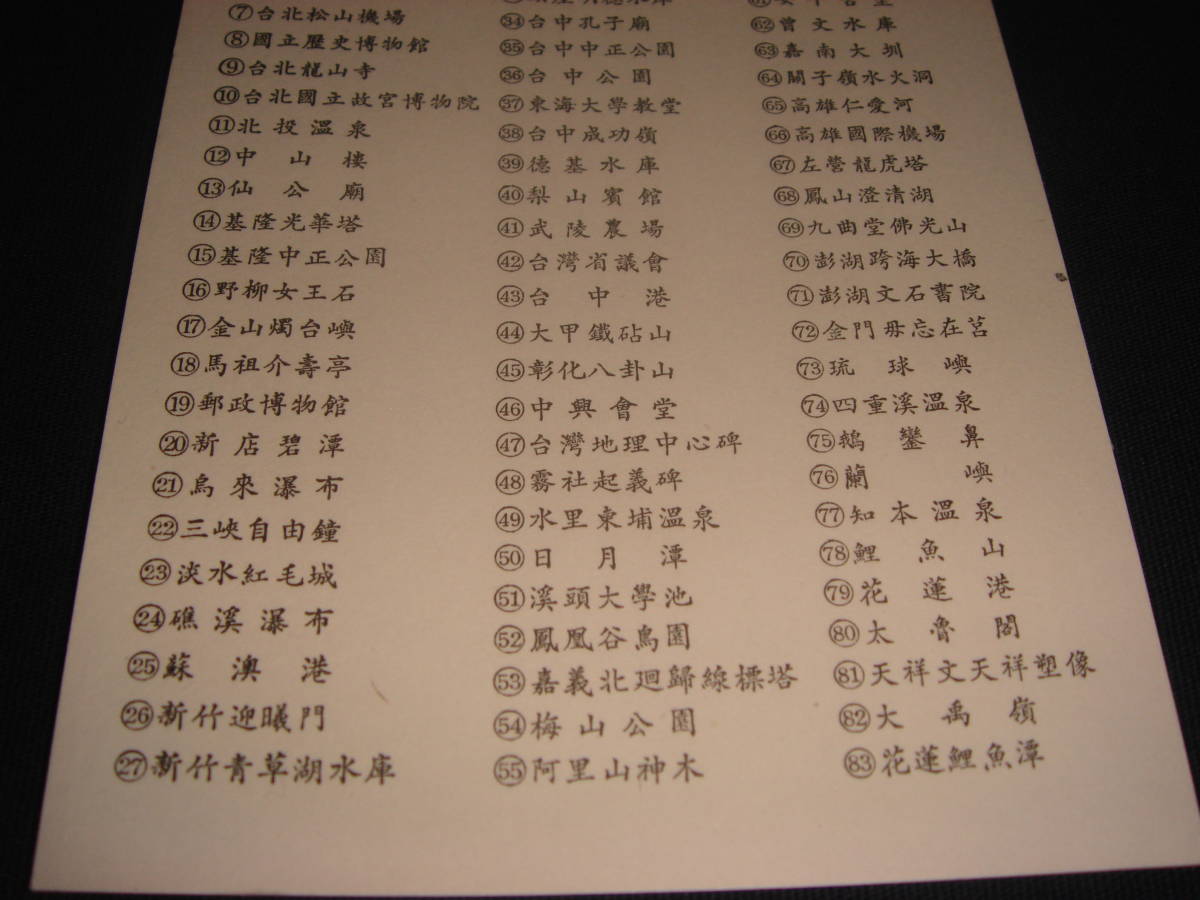 ⑦台北松山機場
⑧國立歷史博物館
⑨台北龍山寺
⑩台北國立故宮博物院
⑪北投溫泉
⑫中山樓
⑬仙公廟
⑭基隆光華塔
⑮基隆中正公園
⑯野柳女王石
⑰金山燭台嶼
⑱馬祖介壽亭
⑲郵政博物館
⑳新店碧潭
㉑烏來瀑布
㉒三峽自由鐘
㉓淡水紅毛城
㉔礁溪瀑布
㉕蘇澳港
㉖新竹迎曦門
㉗新竹青草湖水庫
㉞台中孔子廟
㉟台中中正公園
㊱台中公園
㊲東海大學教堂
㊳台中成功嶺
㊴德基水庫
㊵梨山賓館
㊶武陵農場
㊷台灣省議會
㊸台中港
㊹大甲鐵砧山
㊺彰化八卦山
㊻中興會堂
㊼台灣地理中心碑
㊽霧社起義碑
㊾水里東埔溫泉
㊿日月潭
51溪頭大學池
52鳳凰谷鳥園
53嘉義北廻歸線標塔
54梅山公園
55阿里山神木
62曾文水庫
63嘉南大圳
64關子嶺水火洞
65高雄仁愛河
66高雄國際機場
67左營龍虎塔
68鳳山澄清湖
69九曲堂佛光山
70澎湖跨海大橋
71澎湖文石書院
72金門毋忘在莒
73琉球嶼
74四重溪溫泉
75鵝鑾鼻
76蘭嶼
77知本溫泉
78鯉魚山
79花蓮港
80太魯閣
81天祥文天祥塑像
82大禹嶺
83花蓮鯉魚潭